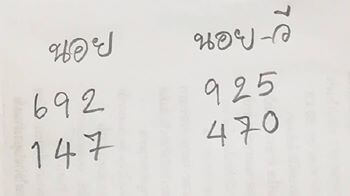 นอย นอย-วี
692 925
147 470